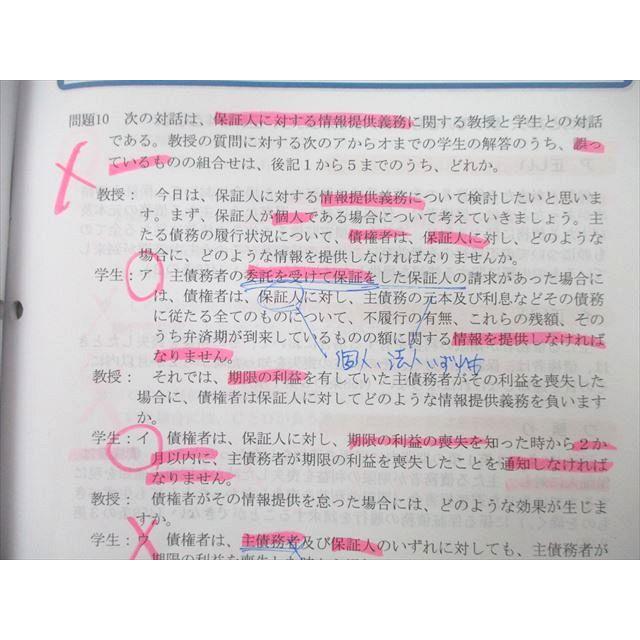 問題10 次の対話は、保証人に対する情報提供義務に関する教授と学生との対話
である。教授の質問に対する次のアからオまでの学生の解答のうち、誤っ
ているものの組合せは、後記1から5までのうち、どれか。
教授: 今日は、保証人に対する情報提供義務について検討したいと思いま
す。まず、保証人が個人である場合について考えていきましょう。主
たる債務の履行状況について、債権者は、保証人に対し、どのような
場合に、どのような情報を提供しなければなりませんか。
学生:ア 主債務者の委託を受けて保証をした保証人の請求があった場合に
は、債権者は、保証人に対し、主債務の元本及び利息などその債務
に従たる全てのものについて、不履行の有無、これらの残額、その
うち弁済期が到来しているものの額に関する情報を提供しなければ
なりません。
個人、法人いずれも
教授: それでは、期限の利益を有していた主債務者がその利益を喪失した
場合に、債権者は保証人に対してどのような情報提供義務を負います
か。
学生:イ 債権者は、保証人に対し、期限の利益の喪失を知った時から2か
月以内に、主債務者が期限の利益を喪失したことを通知しなければ
なりません。
教授: 債権者がその情報提供を怠った場合には、どのような効果が生じま
すか。
学生:ウ 債権者は、主債務者及び保証人のいずれに対しても、主債務者が